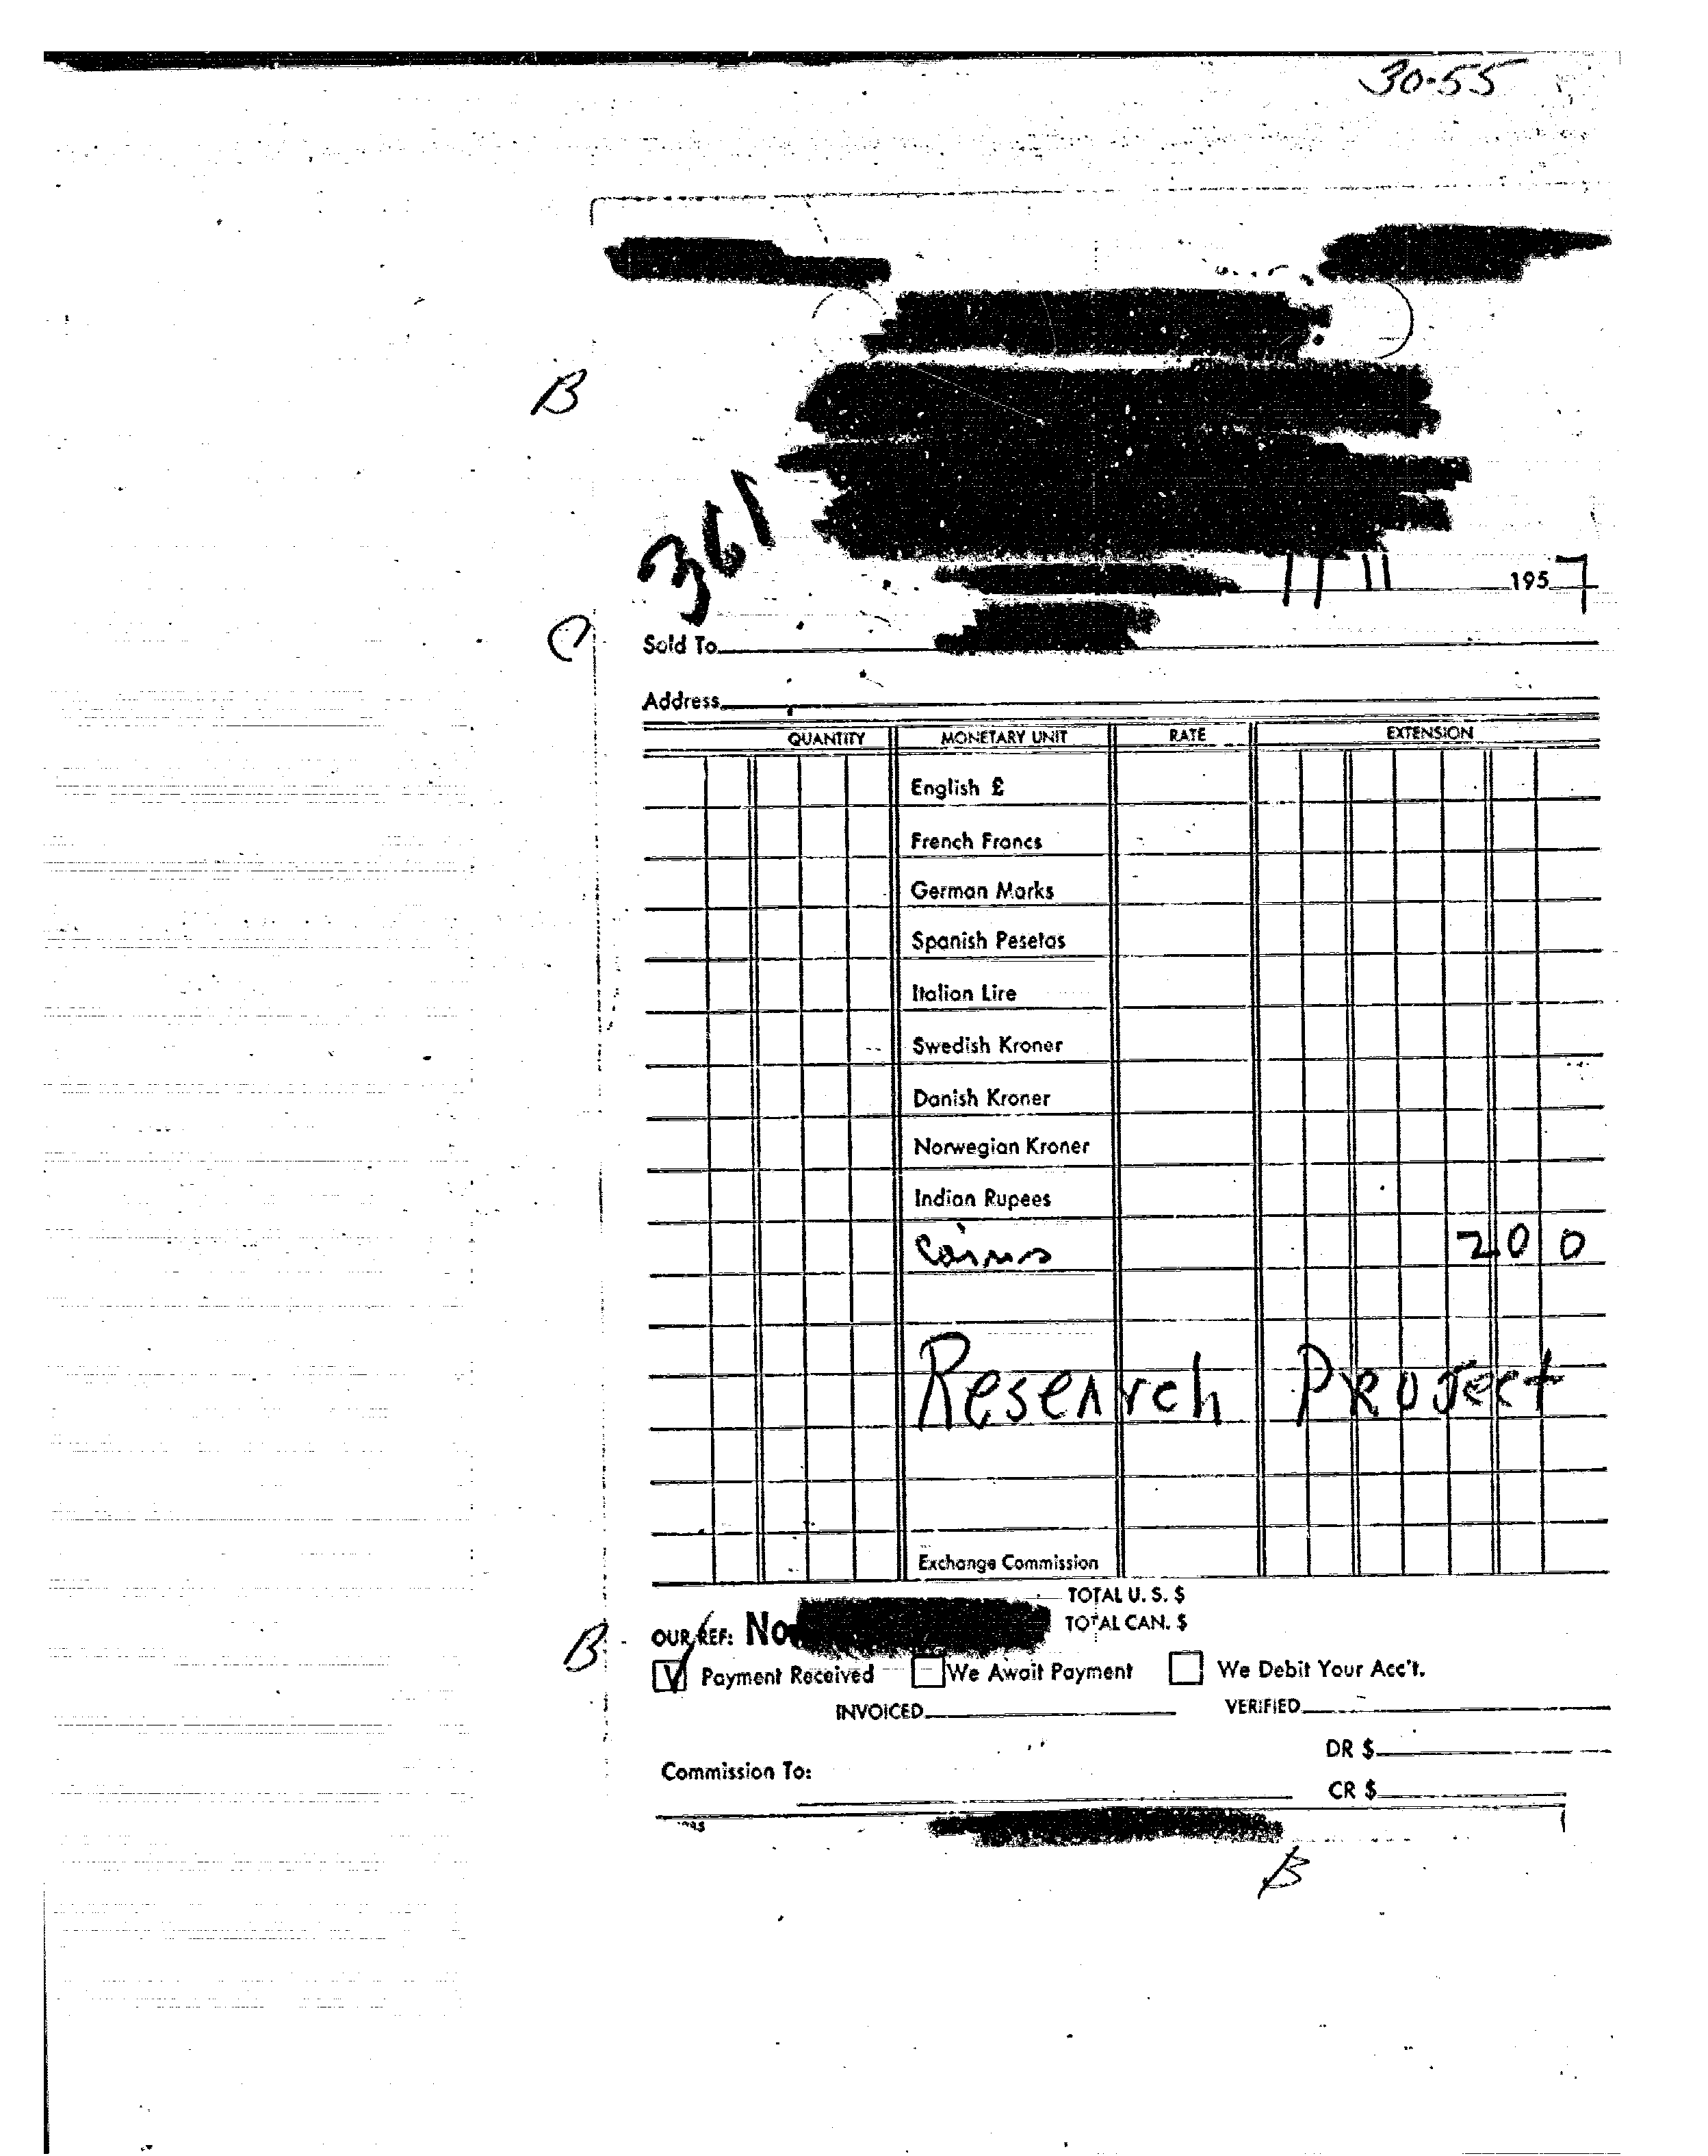 30-55
B
361
11 11 1957
C
Sold To
Address
QUANTITY MONETARY UNIT RATE EXTENSION
English £
French Francs
German Marks
Spanish Pesetas
Italian Lire
Swedish Kroner
Danish Kroner
Norwegian Kroner
Indian Rupees
Coins 200
Research Project
Exchange Commission
TOTAL U. S. $
OUR REF: No TOTAL CAN. $
B
Payment Received We Await Payment We Debit Your Acc't.
INVOICED VERIFIED
DR $
Commission To:
CR $
B